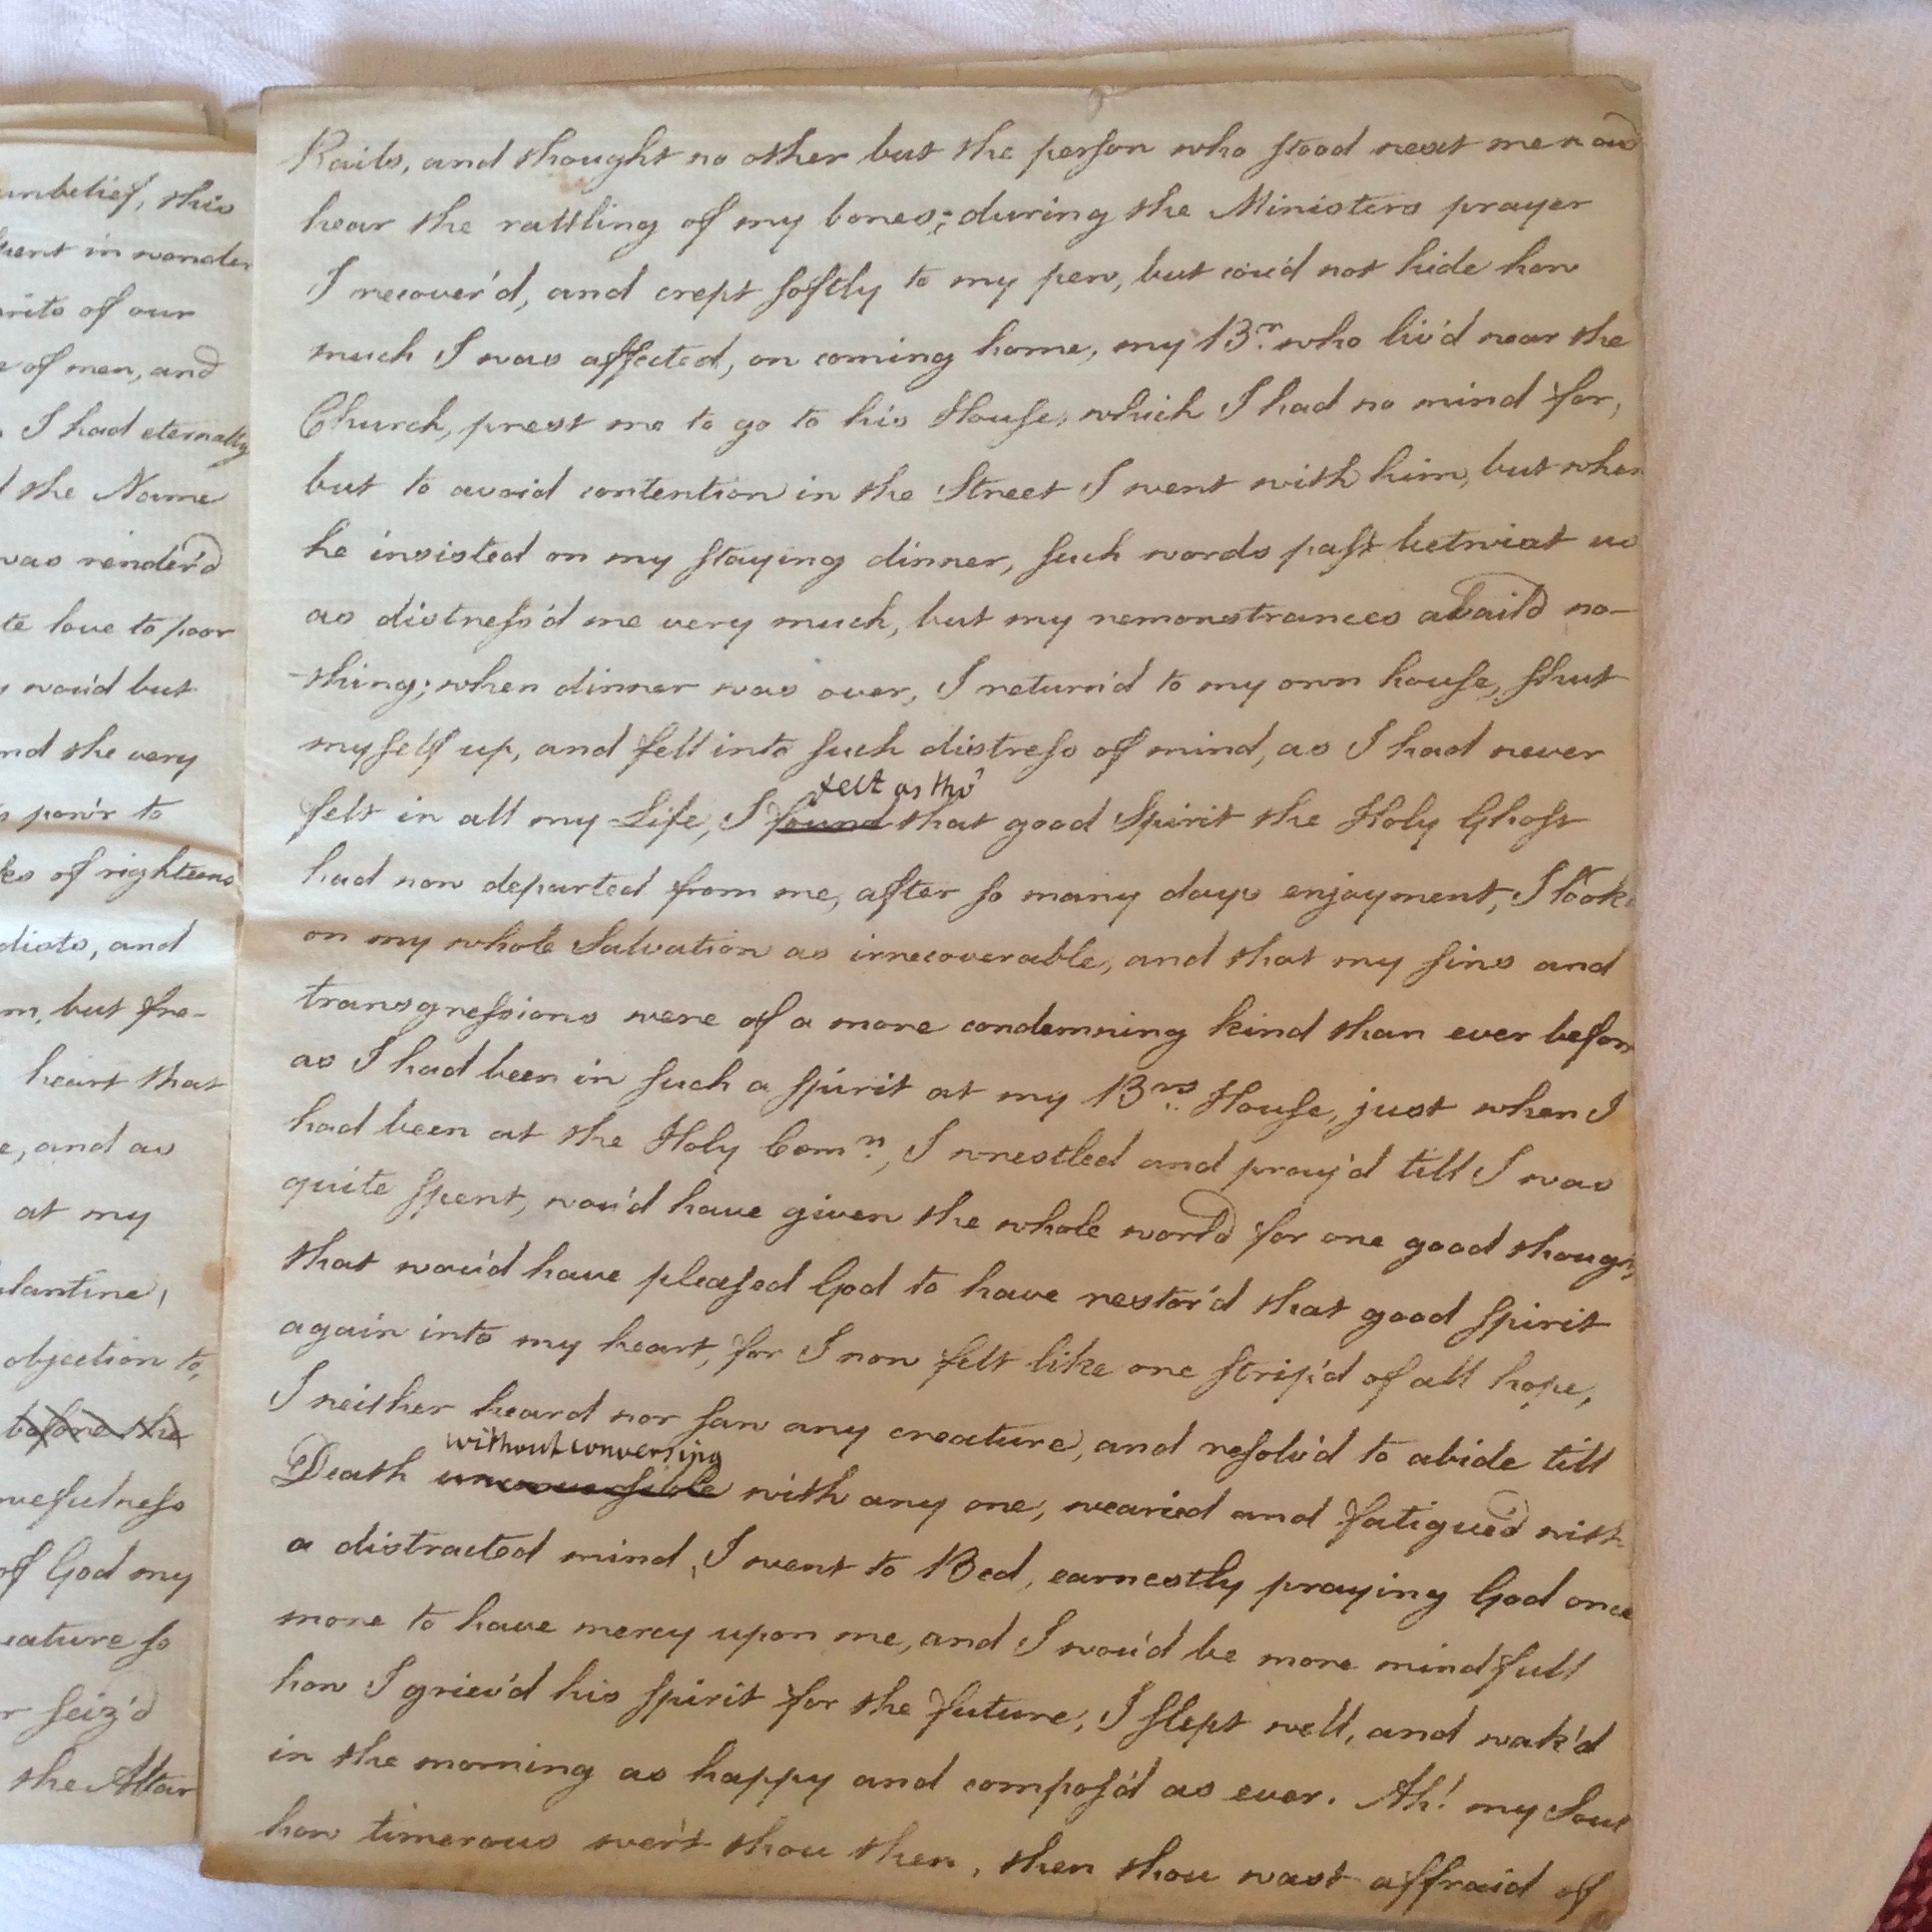 unbelief, this
in wonder
of our
of men, and
I had eternally
the Name
was render'd
love to poor
wou'd but
and the very
pow'r to
of righteous
and
but fre-
heart that
and as
at my
objection to,
before the
of God my
so
seiz'd
the Altar
Rails, and thought no other but the person who stood next me
hear the rattling of my bones; during the Ministers prayer
I recover'd, and crept softly to my pew, but cou'd not hide how
much I was affected, on coming home, my Br. who liv'd near the
Church, prest me to go to his House, which I had no mind for,
but to avoid contention in the Street I went with him, but when
he insisted on my staying dinner, such words past betwixt us
as distress'd me very much, but my remonstrances avail'd no-
-thing; when dinner was over, I return'd to my own house, shut
myself up, and fell into such distress of mind, as I had never
felt as tho'
felt in all my Life, I found that good Spirit the Holy Ghost
had now departed from me, after so many days enjoyment, I look
on my whole Salvation as irrecoverable, and that my sins and
transgressions were of a more condemning kind than ever before
as I had been in such a spirit at my Brs. House, just when I
had been at the Holy Comn., I wrestled and pray'd till I was
quite spent, wou'd have given the whole world for one good thought
that wou'd have pleased God to have restor'd that good spirit
again into my heart, for I now felt like one strip'd of all hope,
I neither heard nor saw any creature, and resolv'd to abide till
without conversing
Death unconversible with any one, wearied and fatigued with
a distracted mind, I went to Bed, earnestly praying God once
more to have mercy upon me, and I wou'd be more mindfull
how I griev'd his spirit for the future, I slept well, and wak'd
in the morning as happy and compos'd as ever. Ah! my Soul
how timerous wer't thou then, then thou wast affraid of